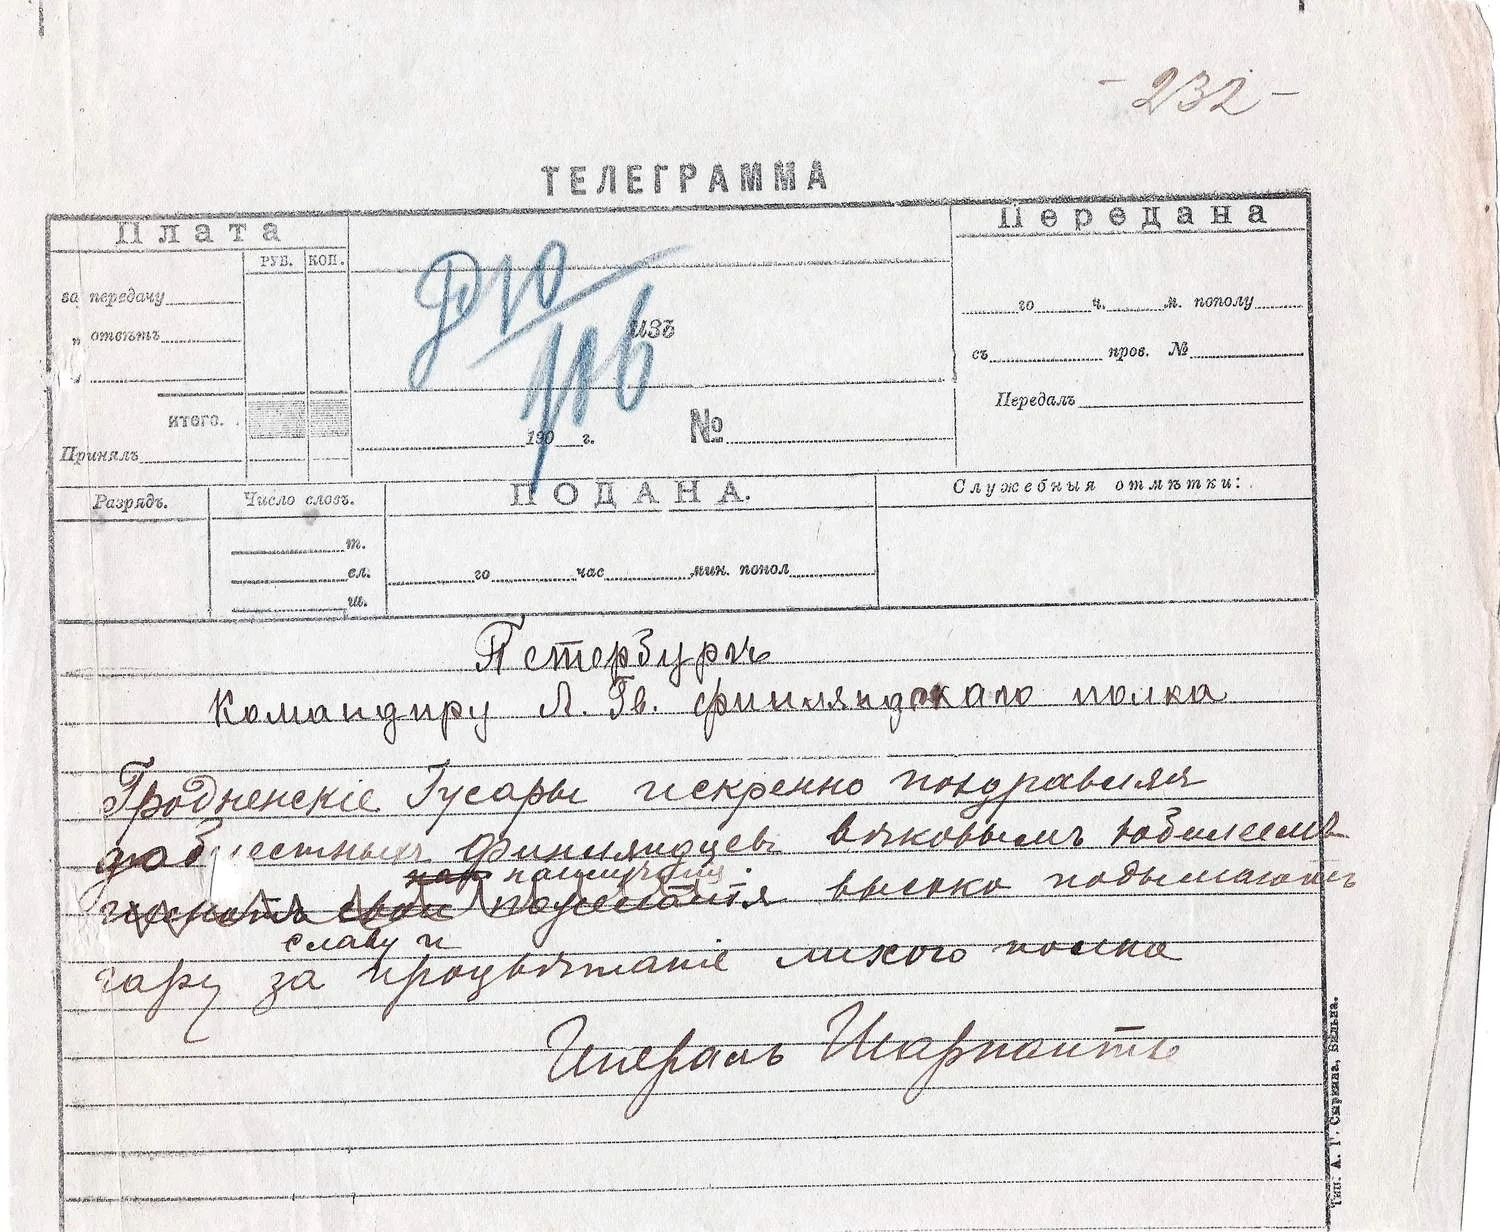 - 232 -
ТЕЛЕГРАММА
Плата
РУБ. КОП.
за передачу
„ отвѣтъ
„
ИТОГО.
Принялъ
изъ
190 г. №
Передана
го ч. м. пополу
съ пров. №
Передалъ
Разрядъ.
Число словъ.
т.
сл.
ш.
ПОДАНА.
го час мин. попол
Служебныя отмѣтки:
Петербургъ
Командиру Л. Гв. Финляндскаго полка
Гродненскіе Гусары искренно поздравляя
доблестныхъ Финляндцевъ вѣковымъ юбилеемъ
шлютъ свои пожеланія высоко подымаютъ
славу и
чару за процвѣтаніе лихого полка
Генералъ Шарпантье
Тип. А. Г. Сыркина, Вильна.